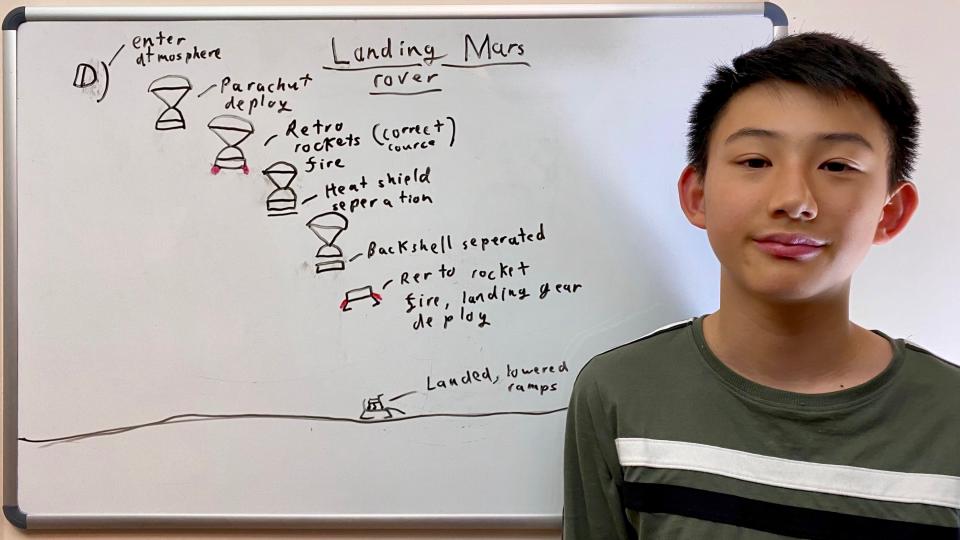 Landing Mars
rover
enter
atmosphere
Parachut
deploy
Retro
rockets (correct
cource)
fire
Heat shield
seperation
Backshell seperated
Rerto rocket
fire, landing gear
deploy
Landed, lowered
ramps